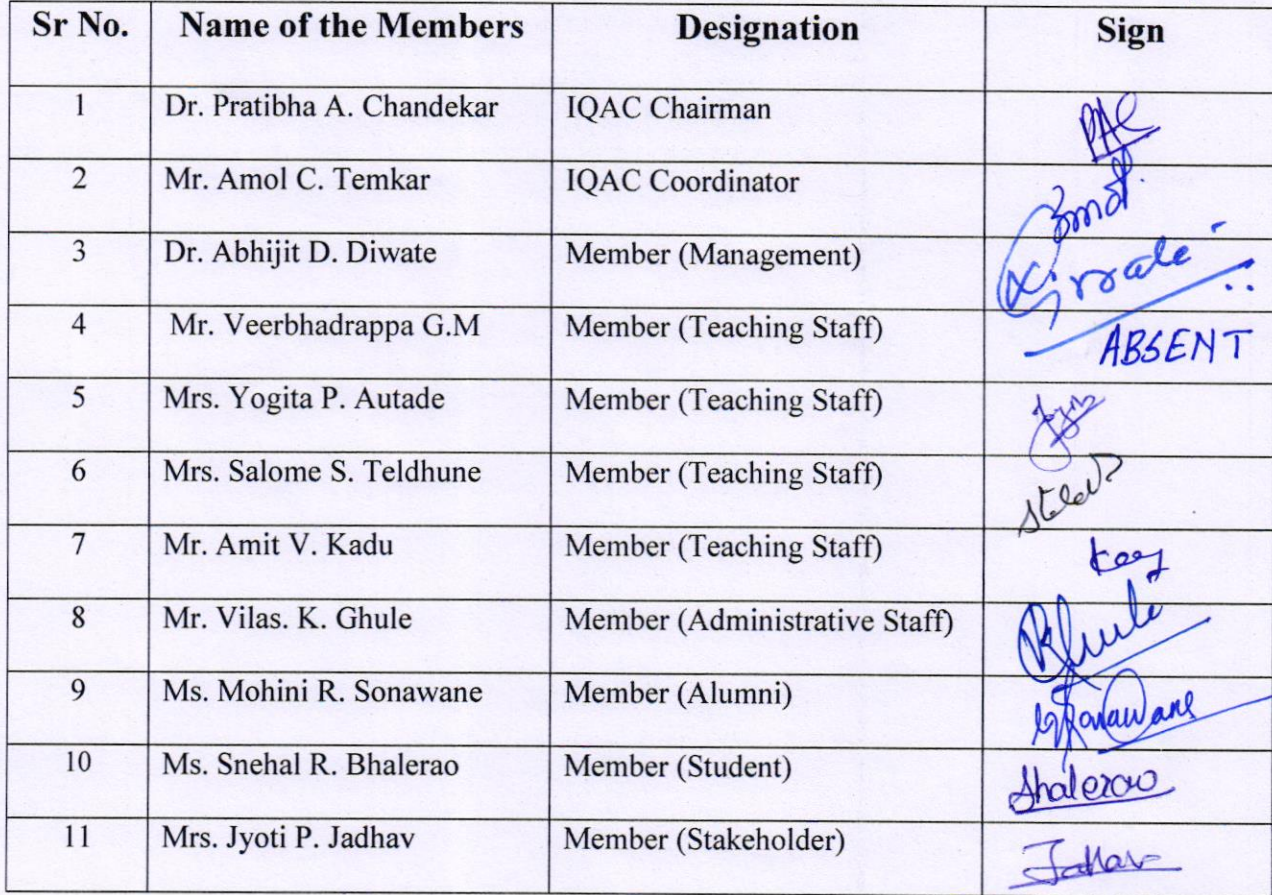 Sr No. Name of the Members Designation Sign
1 Dr. Pratibha A. Chandekar IQAC Chairman PAC
2 Mr. Amol C. Temkar IQAC Coordinator
3 Dr. Abhijit D. Diwate Member (Management)
4 Mr. Veerbhadrappa G.M Member (Teaching Staff) ABSENT
5 Mrs. Yogita P. Autade Member (Teaching Staff)
6 Mrs. Salome S. Teldhune Member (Teaching Staff)
7 Mr. Amit V. Kadu Member (Teaching Staff)
8 Mr. Vilas. K. Ghule Member (Administrative Staff)
9 Ms. Mohini R. Sonawane Member (Alumni)
10 Ms. Snehal R. Bhalerao Member (Student)
11 Mrs. Jyoti P. Jadhav Member (Stakeholder)